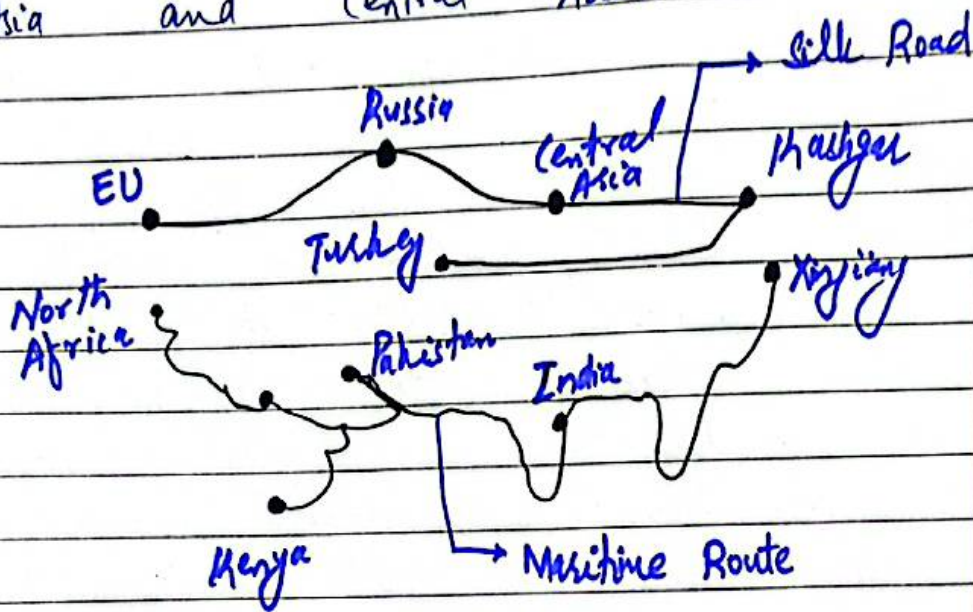 sia and Central
Silk Road
Russia
Central
Asia
Kashgar
EU
Turkey
Xinjiang
North
Africa
Pakistan
India
Kenya
Maritime Route